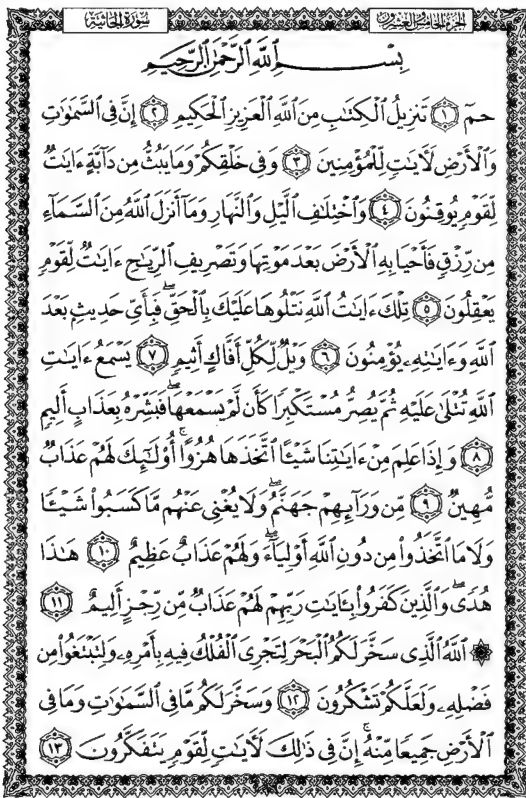 الجزء الخامس والعشرون سورة الجاثية
بِسْمِ اللَّهِ الرَّحْمَٰنِ الرَّحِيمِ
حمٓ ﴿١﴾ تَنزِيلُ ٱلْكِتَٰبِ مِنَ ٱللَّهِ ٱلْعَزِيزِ ٱلْحَكِيمِ ﴿٢﴾ إِنَّ فِى ٱلسَّمَٰوَٰتِ
وَٱلْأَرْضِ لَءَايَٰتٍ لِّلْمُؤْمِنِينَ ﴿٣﴾ وَفِى خَلْقِكُمْ وَمَا يَبُثُّ مِن دَآبَّةٍ ءَايَٰتٌ
لِّقَوْمٍ يُوقِنُونَ ﴿٤﴾ وَٱخْتِلَٰفِ ٱلَّيْلِ وَٱلنَّهَارِ وَمَآ أَنزَلَ ٱللَّهُ مِنَ ٱلسَّمَآءِ
مِن رِّزْقٍ فَأَحْيَا بِهِ ٱلْأَرْضَ بَعْدَ مَوْتِهَا وَتَصْرِيفِ ٱلرِّيَٰحِ ءَايَٰتٌ لِّقَوْمٍ
يَعْقِلُونَ ﴿٥﴾ تِلْكَ ءَايَٰتُ ٱللَّهِ نَتْلُوهَا عَلَيْكَ بِٱلْحَقِّ ۖ فَبِأَىِّ حَدِيثٍۭ بَعْدَ
ٱللَّهِ وَءَايَٰتِهِۦ يُؤْمِنُونَ ﴿٦﴾ وَيْلٌ لِّكُلِّ أَفَّاكٍ أَثِيمٍ ﴿٧﴾ يَسْمَعُ ءَايَٰتِ
ٱللَّهِ تُتْلَىٰ عَلَيْهِ ثُمَّ يُصِرُّ مُسْتَكْبِرًا كَأَن لَّمْ يَسْمَعْهَا ۖ فَبَشِّرْهُ بِعَذَابٍ أَلِيمٍ
﴿٨﴾ وَإِذَا عَلِمَ مِنْ ءَايَٰتِنَا شَيْـًٔا ٱتَّخَذَهَا هُزُوًا ۚ أُو۟لَٰٓئِكَ لَهُمْ عَذَابٌ
مُّهِينٌ ﴿٩﴾ مِّن وَرَآئِهِمْ جَهَنَّمُ ۖ وَلَا يُغْنِى عَنْهُم مَّا كَسَبُوا۟ شَيْـًٔا
وَلَا مَا ٱتَّخَذُوا۟ مِن دُونِ ٱللَّهِ أَوْلِيَآءَ ۖ وَلَهُمْ عَذَابٌ عَظِيمٌ ﴿١٠﴾ هَٰذَا
هُدًى ۖ وَٱلَّذِينَ كَفَرُوا۟ بِـَٔايَٰتِ رَبِّهِمْ لَهُمْ عَذَابٌ مِّن رِّجْزٍ أَلِيمٌ ﴿١١﴾
۞ ٱللَّهُ ٱلَّذِى سَخَّرَ لَكُمُ ٱلْبَحْرَ لِتَجْرِىَ ٱلْفُلْكُ فِيهِ بِأَمْرِهِۦ وَلِتَبْتَغُوا۟ مِن
فَضْلِهِۦ وَلَعَلَّكُمْ تَشْكُرُونَ ﴿١٢﴾ وَسَخَّرَ لَكُم مَّا فِى ٱلسَّمَٰوَٰتِ وَمَا فِى
ٱلْأَرْضِ جَمِيعًا مِّنْهُ ۚ إِنَّ فِى ذَٰلِكَ لَءَايَٰتٍ لِّقَوْمٍ يَتَفَكَّرُونَ ﴿١٣﴾